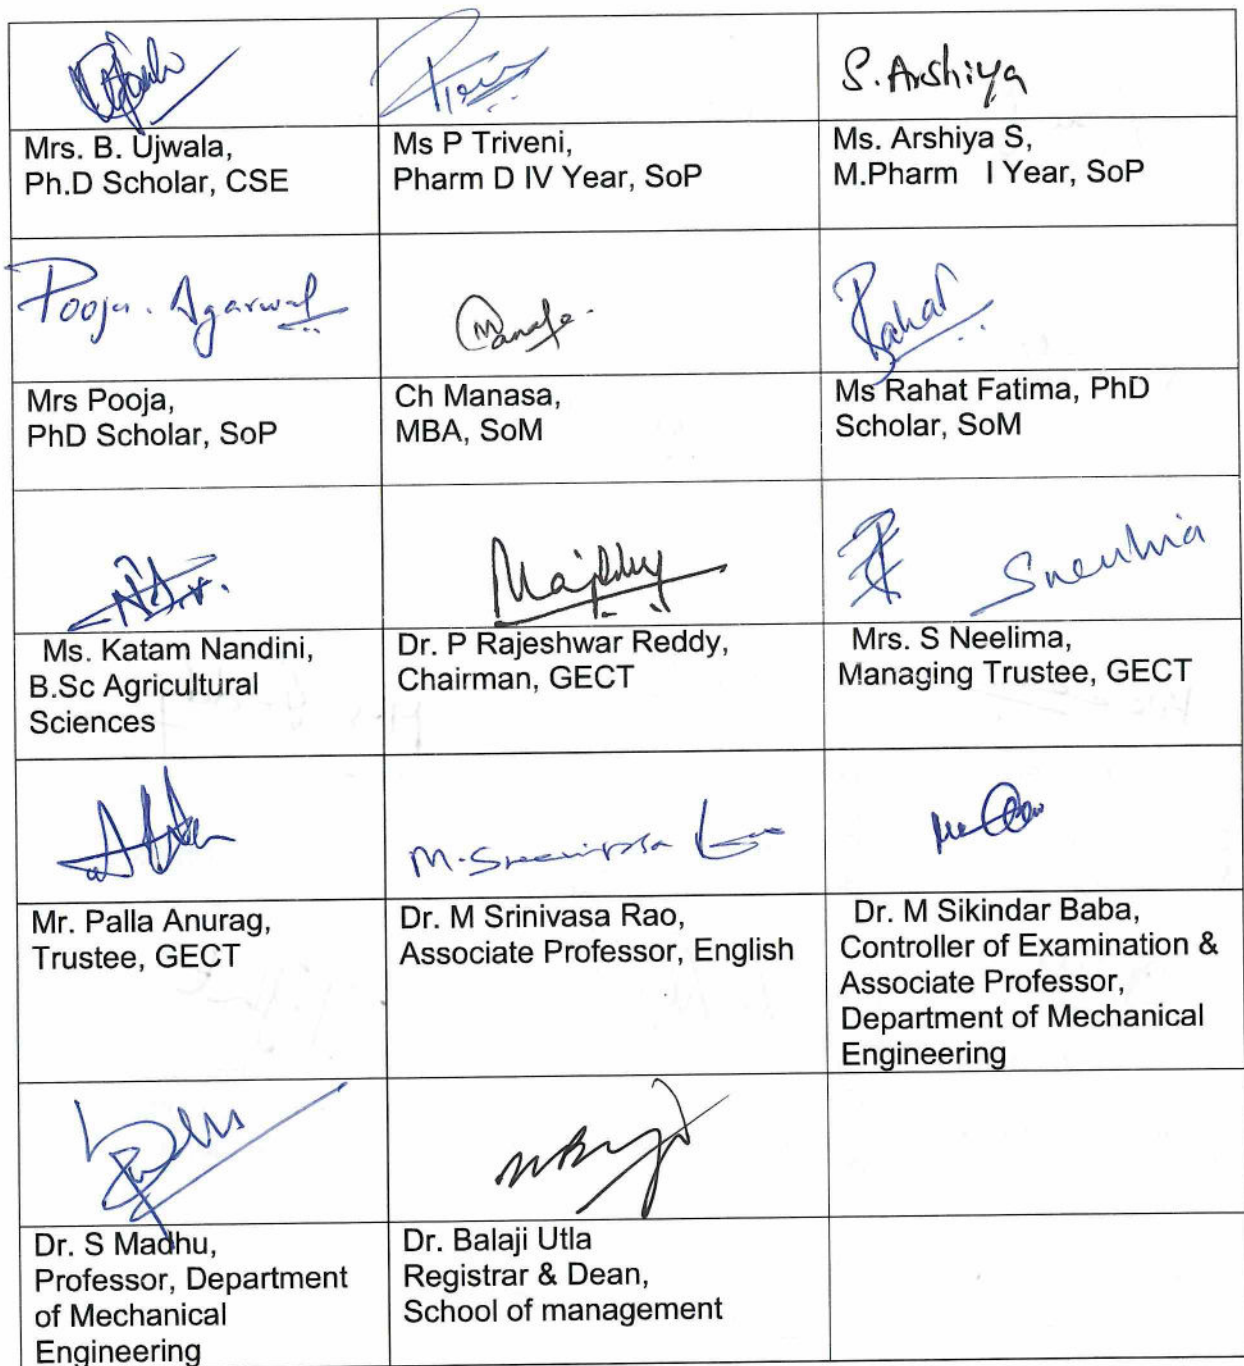 S. Arshiya
Mrs. B. Ujwala,
Ph.D Scholar, CSE
Ms P Triveni,
Pharm D IV Year, SoP
Ms. Arshiya S,
M.Pharm I Year, SoP
Pooja. Agarwal
Manasa.
Rahat
Mrs Pooja,
PhD Scholar, SoP
Ch Manasa,
MBA, SoM
Ms Rahat Fatima, PhD
Scholar, SoM
Ms. Katam Nandini,
B.Sc Agricultural
Sciences
Dr. P Rajeshwar Reddy,
Chairman, GECT
Mrs. S Neelima,
Managing Trustee, GECT
Mr. Palla Anurag,
Trustee, GECT
Dr. M Srinivasa Rao,
Associate Professor, English
Dr. M Sikindar Baba,
Controller of Examination &
Associate Professor,
Department of Mechanical
Engineering
Dr. S Madhu,
Professor, Department
of Mechanical
Engineering
Dr. Balaji Utla
Registrar & Dean,
School of management